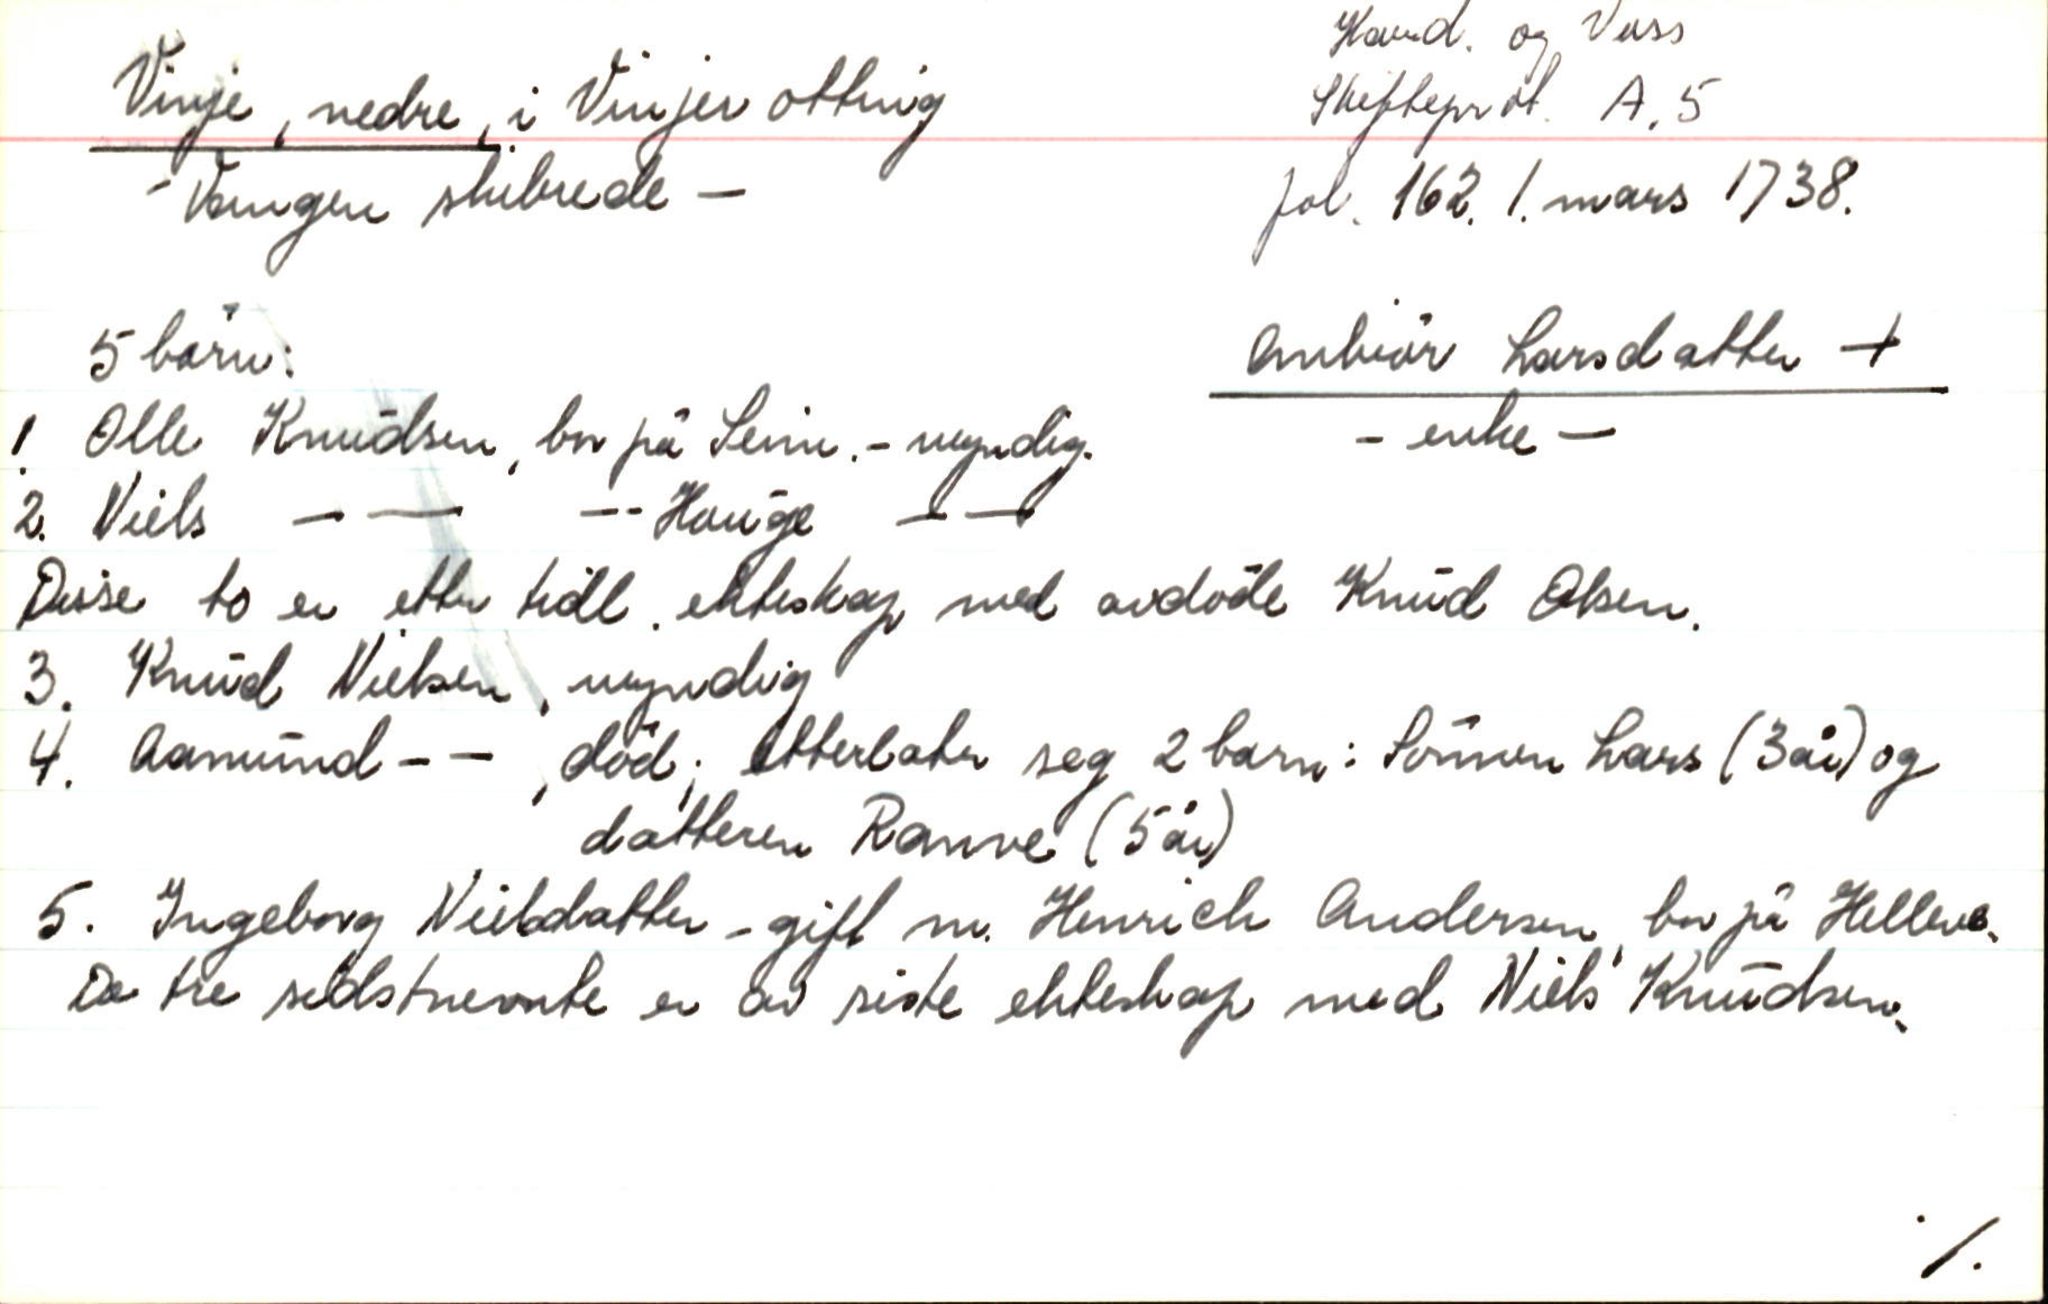 Vinje, nedre, i Vinjer otting
- Vangen skibrede -
Hard. og Voss
Skifteprot. A, 5
fol. 162. 1. mars 1738.
5 born:
Anbiør Larsdatter +
- enke -
1. Olle Knudsen, bor på Seim. - myndig.
2. Niels - — -- Hauge - —
Disse to er etter tidl. ekteskap med avdøde Knud Olsen.
3. Knud Nielsen, myndig
4. Aamund - -, död; etterlater seg 2 barn: Sönnen Lars (3 år) og
datteren Ranve (5 år)
5. Ingeborg Nielsdatter - gift m. Henrich Andersen, bor på Helleve.
De tre sidstnevnte er av siste ekteskap med Niels Knudsen.
./.